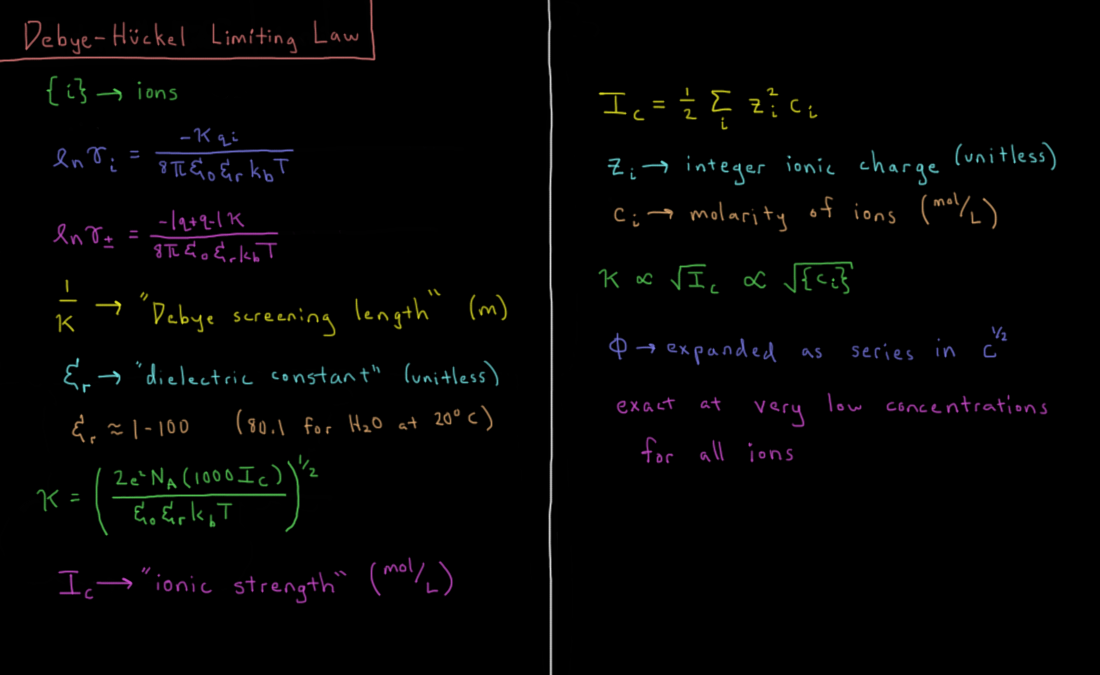 Debye-Hückel Limiting Law
{i} → ions
ln γᵢ = -κ qᵢ / 8πε₀εᵣk_bT
ln γ± = -|q+q-|κ / 8πε₀εᵣk_bT
1/κ → "Debye screening length" (m)
εᵣ → "dielectric constant" (unitless)
εᵣ ≈ 1-100 (80.1 for H₂O at 20°C)
κ = (2e²N_A(1000I_c) / ε₀εᵣk_bT)^1/2
I_c → "ionic strength" (mol/L)
I_c = 1/2 Σᵢ zᵢ² cᵢ
zᵢ → integer ionic charge (unitless)
cᵢ → molarity of ions (mol/L)
κ ∝ √I_c ∝ √{cᵢ}
Φ → expanded as series in c^1/2
exact at very low concentrations
for all ions